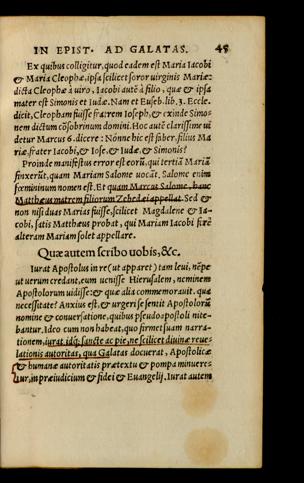 IN EPIST. AD GALATAS. 45
Ex quibus colligitur, quod eadem est Maria Iacobi
& Maria Cleophæ, ipsa scilicet soror virginis Mariæ:
dicta Cleophæ à uiro, Iacobi autē à filio, quæ & ipsa
mater est Simonis et Iudæ. Nam et Euseb. lib. 3. Eccle.
dicit, Cleopham fuisse fratrem Ioseph, & exinde Simo-
nem dictum cōsobrinum domini. Hoc autē clarissime ui
detur Marcus 6. dicere: Nónne hic est faber, filius Ma
riæ, frater Iacobi, & Iose. & Iudæ & Simonis?
Proinde manifestus error est eorū, qui tertiā Mariā
finxerūt, quam Mariam Salome uocāt. Salome enim
fœmininum nomen est. Et quam Marcus Salome, hanc
Matthæus matrem filiorum Zebedæi appellat. Sed &
non nisi duas Marias fuisse, scilicet Magdalene & Ia-
cobi, satis Matthæus probat, qui Mariam Iacobi ferè
alteram Mariam solet appellare.
Quæ autem scribo uobis, &c.
Iurat Apostolus in re (ut apparet) tam leui, nēpe
ut uerum credant, eum uenisse Hierusalem, neminem
Apostolorum uidisse: & quæ alia commemorauit. quæ
necessitate? Anxius est, & urgeri se sentit Apostolorū
nomine & conuersatione, quibus pseudoapostoli nite-
bantur. Ideo cum non habeat, quo firmet suam narra-
tionem, iurat idq; sancte ac pie, ne scilicet diuinæ reue-
lationis autoritas, qua Galatas docuerat, Apostolicæ
& humanæ autoritatis prætextu & pompa minuere-
tur, in præiudicium & fidei & Euangelij. Iurat autem